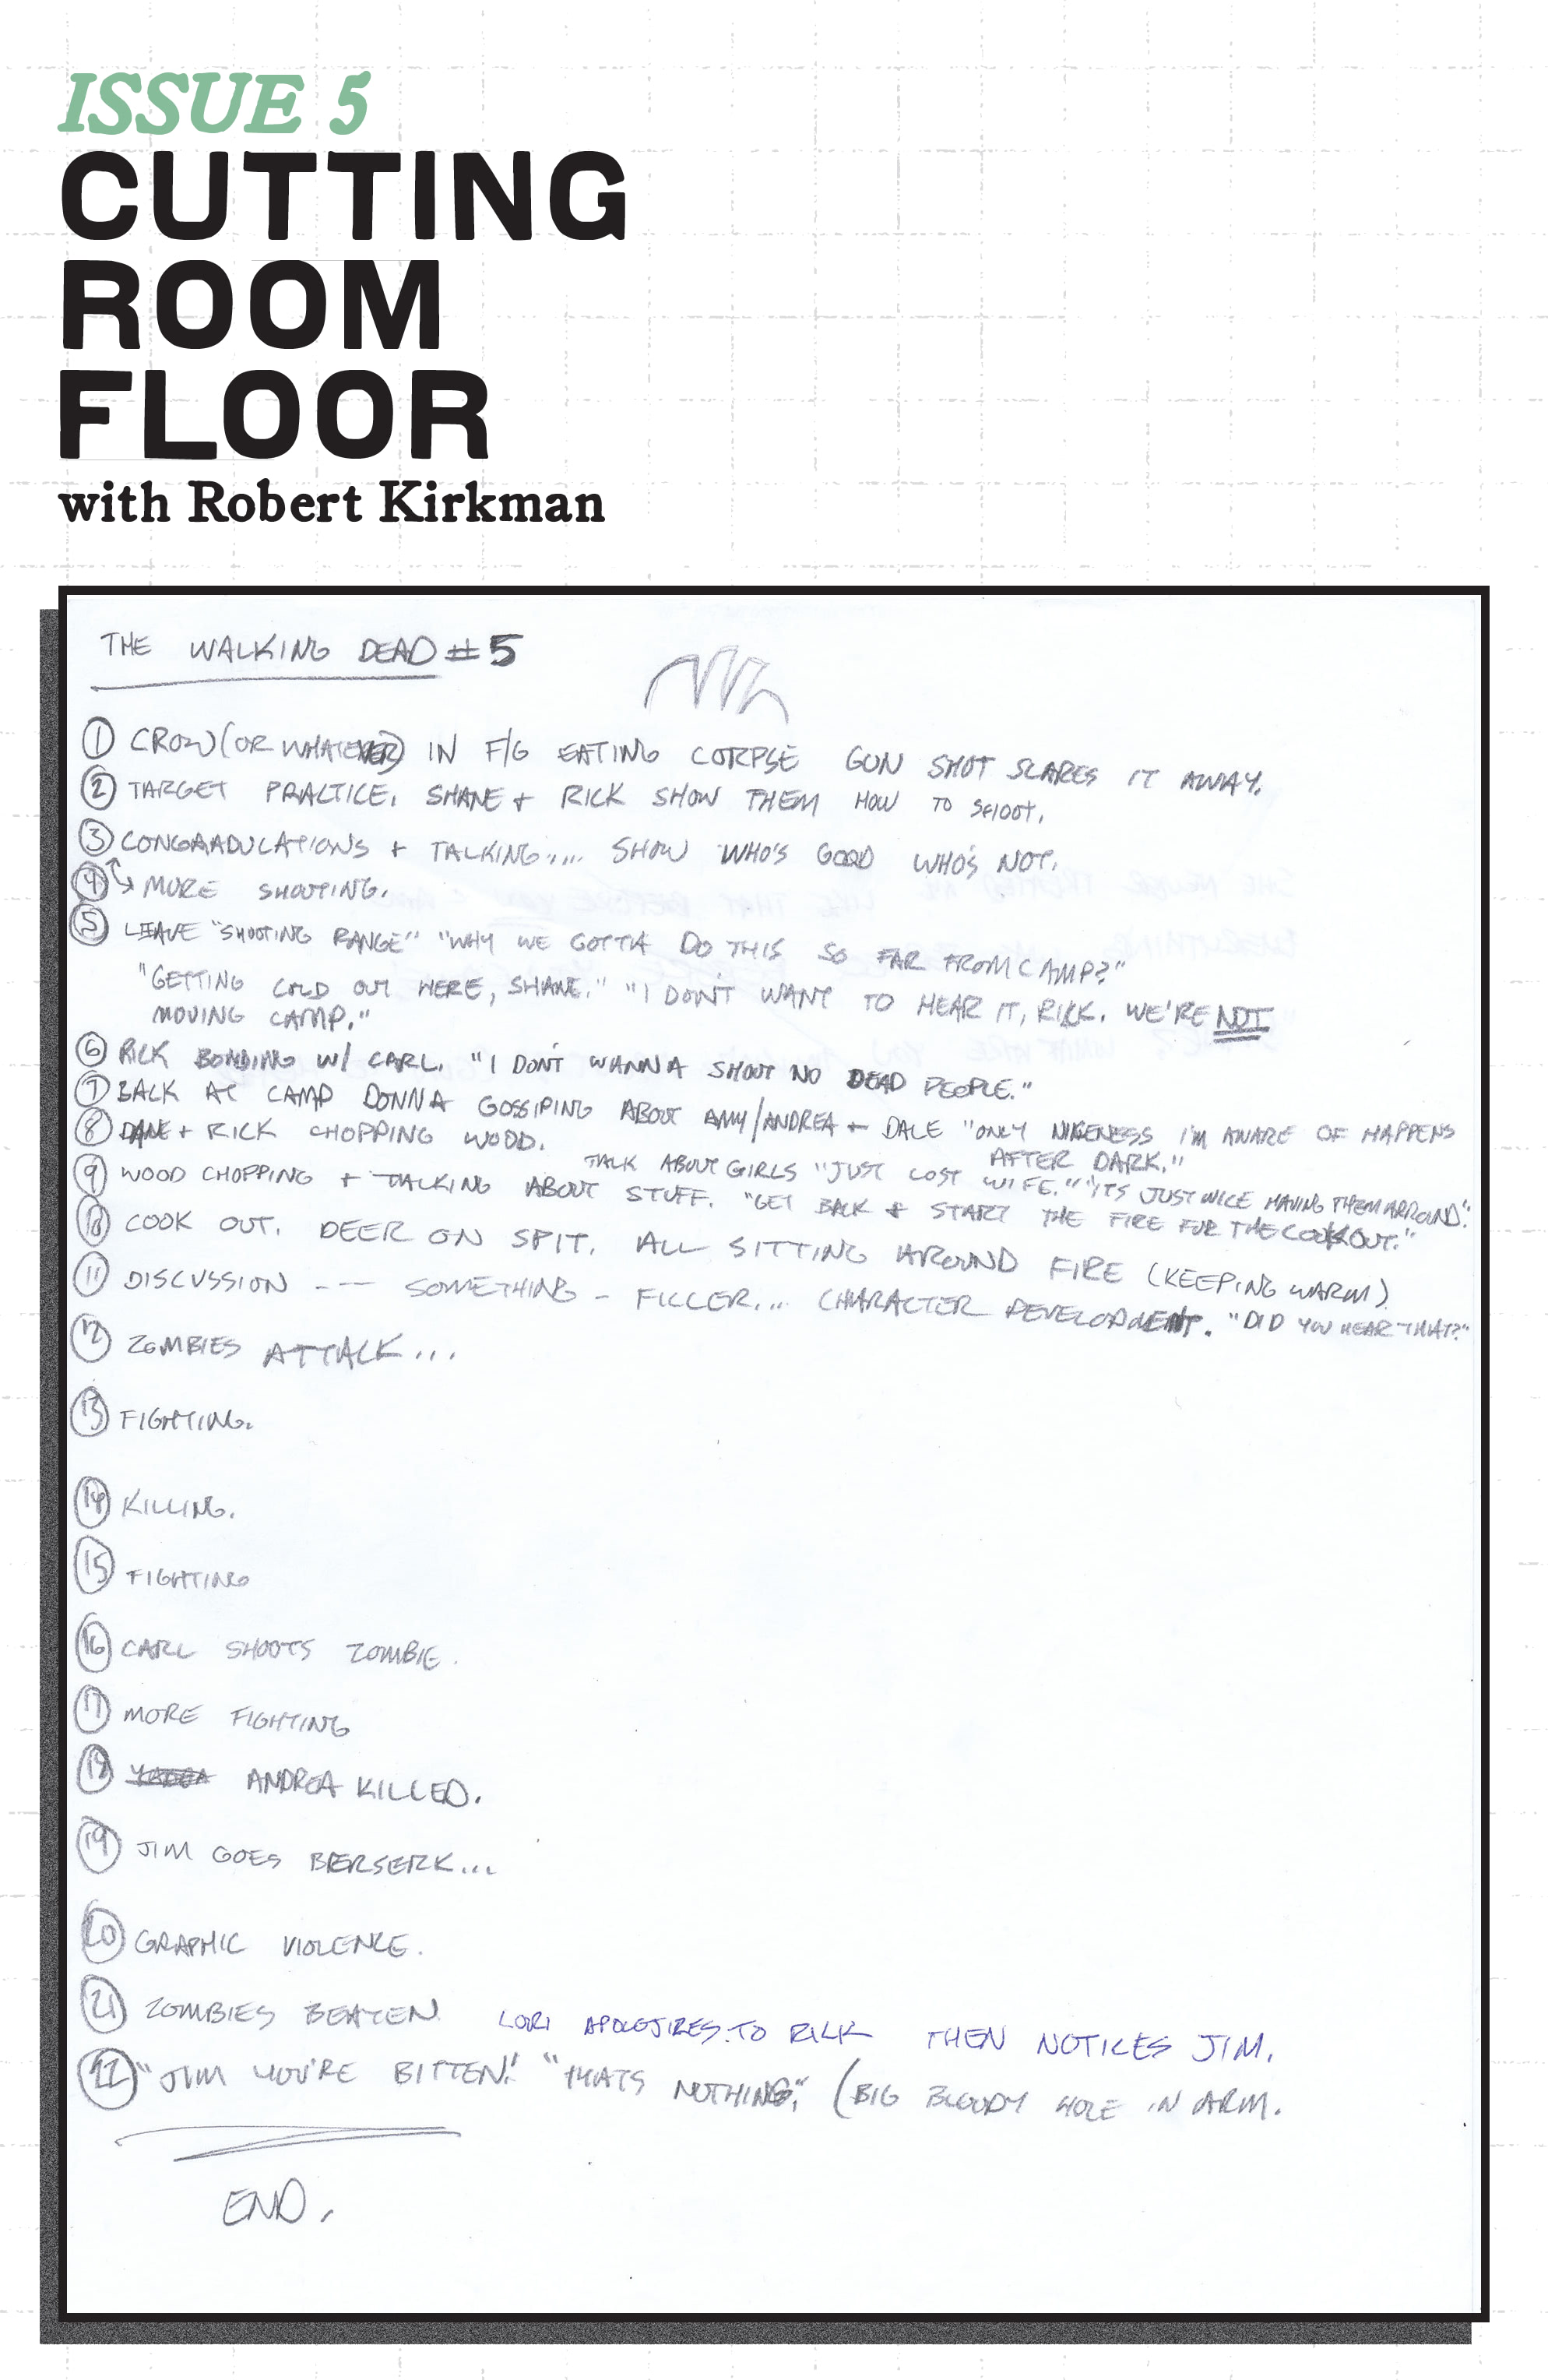 ISSUE 5
CUTTING
ROOM
FLOOR
with Robert Kirkman
THE WALKING DEAD #5
① CROW (OR WHATEVER) IN F/G EATING CORPSE GUN SHOT SCARES IT AWAY.
② TARGET PRACTICE. SHANE + RICK SHOW THEM HOW TO SHOOT.
③ CONGRADULATIONS + TALKING.... SHOW WHO'S GOOD WHO'S NOT.
④ MORE SHOOTING.
⑤ LEAVE "SHOOTING RANGE" "WHY WE GOTTA DO THIS SO FAR FROM CAMP?"
"GETTING COLD OUT HERE, SHANE." "I DON'T WANT TO HEAR IT, RICK. WE'RE NOT
MOVING CAMP."
⑥ RICK BONDING W/ CARL. "I DON'T WANNA SHOOT NO DEAD PEOPLE."
⑦ BACK AT CAMP DONNA GOSSIPING ABOUT AMY/ANDREA + DALE "ONLY NICENESS I'M AWARE OF HAPPENS
AFTER DARK."
⑧ DALE + RICK CHOPPING WOOD. TALK ABOUT GIRLS "JUST LOST WIFE." "ITS JUST NICE HAVING THEM ARROUND."
⑨ WOOD CHOPPING + TALKING ABOUT STUFF. "GET BACK & START THE FIRE FOR THE COOKOUT."
⑩ COOK OUT. DEER ON SPIT. ALL SITTING AROUND FIRE (KEEPING WARM)
⑪ DISCUSSION --- SOMETHING - FILLER... CHARACTER DEVELOPMENT. "DID YOU HEAR THAT?"
⑫ ZOMBIES ATTACK...
⑬ FIGHTING.
⑭ KILLING.
⑮ FIGHTING
⑯ CARL SHOOTS ZOMBIE.
⑰ MORE FIGHTING
⑱ ANDREA KILLED.
⑲ JIM GOES BERSERK...
⑳ GRAPHIC VIOLENCE.
㉑ ZOMBIES BEATEN. LORI APOLOJIZES TO RICK THEN NOTICES JIM.
㉒ "JIM YOU'RE BITTEN!" "THATS NOTHING." (BIG BLOODY HOLE IN ARM.
END.